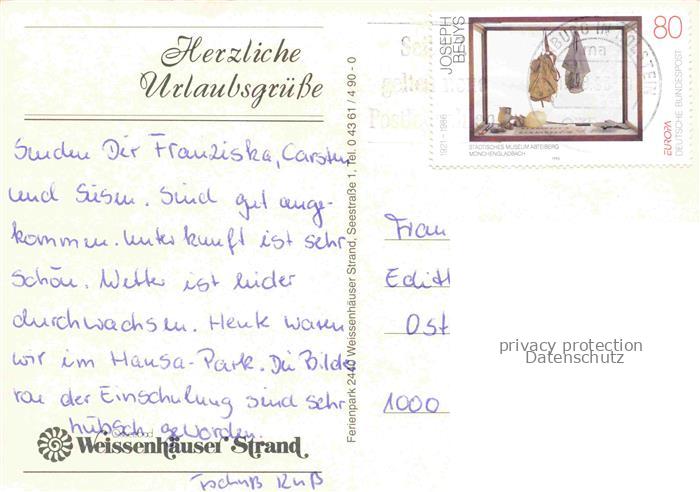 Herzliche
Urlaubsgrüße
Senden Dir Franziska, Carsten
und Susen. Sind gut ange-
kommen. Unterkunft ist sehr
schön. Wetter ist leider
durchwachsen. Heute waren
wir im Hansa-Park. Die Bilder
von der Einschulung sind sehr
hübsch geworden.
Weissenhäuser Strand
Tschüß Kuß
Ferienpark 2440 Weissenhäuser Strand, Seestraße 1, Tel. 0 43 61 / 4 90 - 0
JOSEPH
BEUYS
1921 - 1986
80
STÄDTISCHES MUSEUM ABTEIBERG
MÖNCHENGLADBACH
1993
EUROPA
DEUTSCHE BUNDESPOST
BURG IN HOLSTEIN
gelten neue
Frau
Edith
Ost
1000
privacy protection
Datenschutz